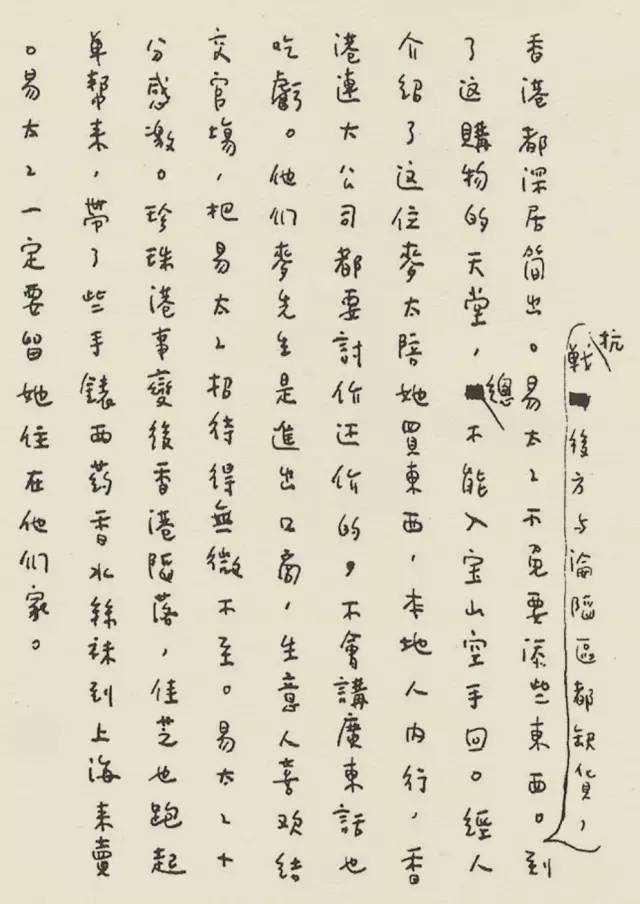 抗戰後方与淪陷區都缺貨，
香港都深居簡出。易太〻不免要添些東西。到
了这購物的天堂，總不能入宝山空手回。經人
介紹了这位麥太陪她買東西，本地人内行，香
港連大公司都要討价还价的，不會講廣東話也
吃虧。他们麥先生是進出口商，生意人喜欢結
交官場，把易太〻招待得無微不至。易太〻十
分感激。珍珠港事變後香港陷落，佳芝也跑起
单幫来，帶了些手錶西药香水絲袜到上海来賣
。易太〻一定要留她住在他们家。